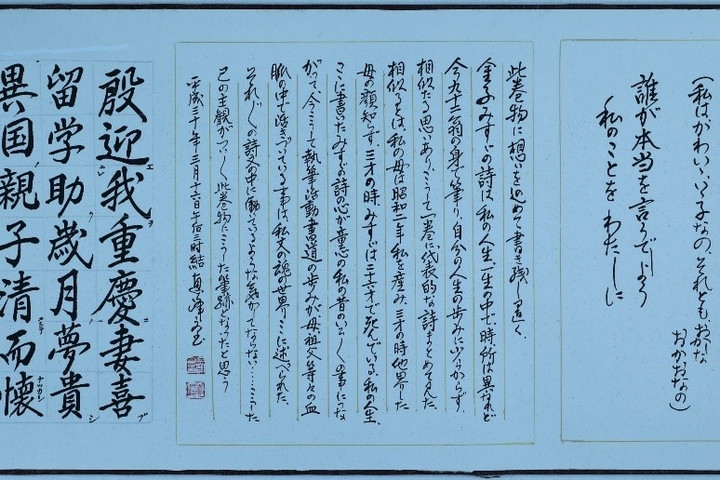 (私はがわいい、いい子なの、それとも、おかな
おかおなの)
誰が本当を言うでしょう
私のことを わたしに
此巻物に想いを込めて書き残し置く、
金子みすゞの詩は、私の人生、一生の中で、時所は異なれど
今九十二翁の身で筆り、自分の人生の歩みに少なからず、
相似たる思いあり、一巻に代表的な詩まとめてみた、
相似たるは、私の母は昭和二年私を産み、三才の時他界した
母の顔知らず、三才の時みすゞは二六才で死んでいる、私の人生、
こに書いたみすゞの詩の心が童心の私の昔いろ〱の事につな
がって、今こうして執筆活動書道の歩みが母、祖父等々の血
脈の中で活きづいている事は、私父の魂の世界こに述べられた、
それ〲の詩文の中に働いているような気がしてならない……こうした
己の主観が此巻物にこうした筆跡となったと思う
平成三十年三月十六日午后三時結
殷迎我重慶妻喜
留学助歳月夢貴
異国親子清而懐